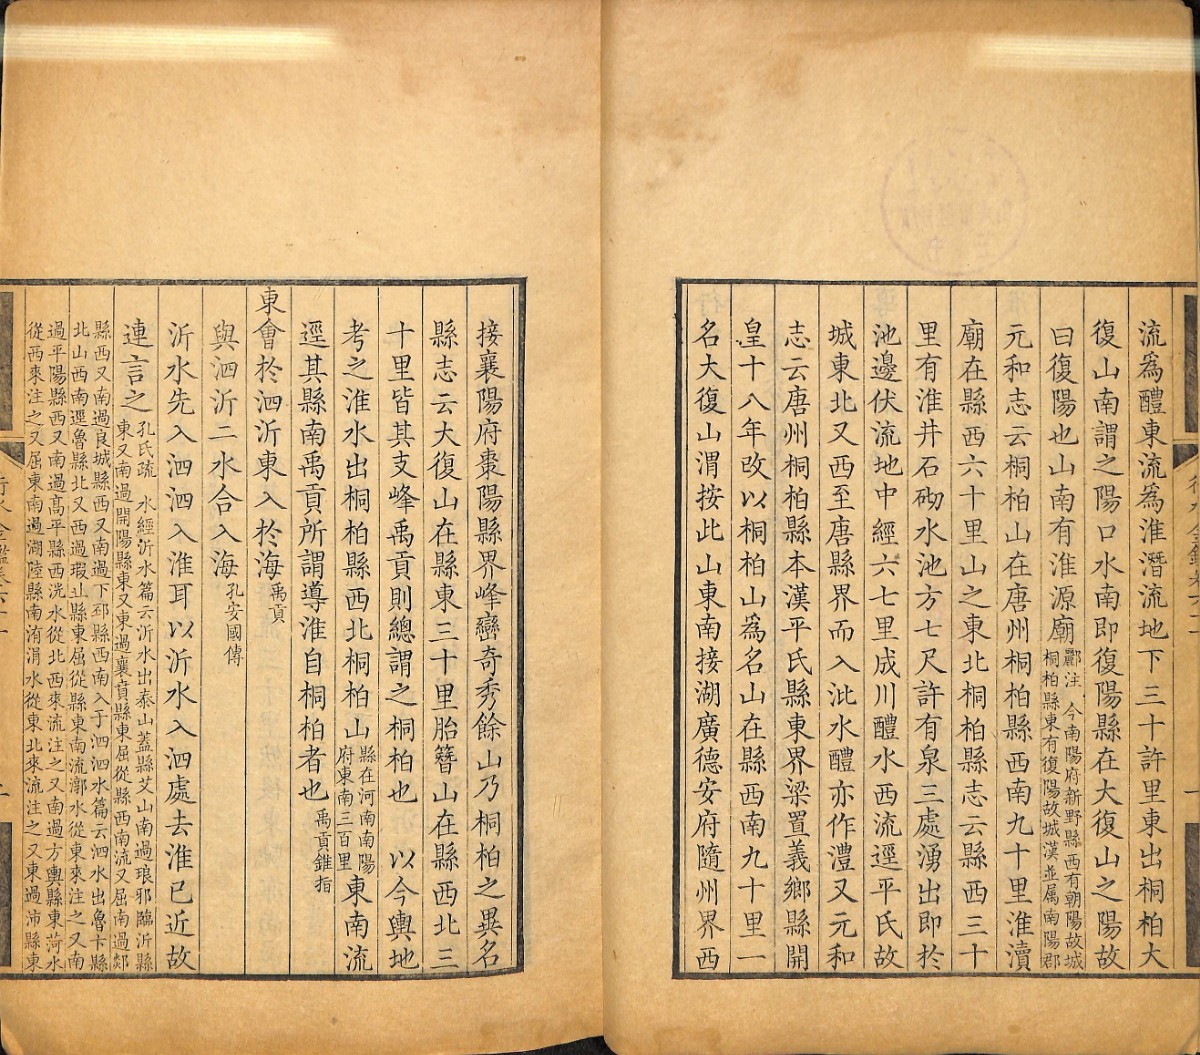 流爲醴東流爲淮潛流地下三十許里東出桐柏大
復山南謂之陽口水南即復陽縣在大復山之陽故
曰復陽也山南有淮源廟酈注 今南陽府新野縣西有朝陽故城
桐柏縣東有復陽故城漢並属南陽郡
元和志云桐柏山在唐州桐柏縣西南九十里淮瀆
廟在縣西六十里山之東北桐柏縣志云縣西三十
里有淮井石砌水池方七尺許有泉三處湧出即於
池邊伏流地中經六七里成川醴水西流逕平氏故
城東北又西至唐縣界而入沘水醴亦作澧又元和
志云唐州桐柏縣本漢平氏縣東界梁置義鄉縣開
皇十八年改以桐柏山為名山在縣西南九十里一
名大復山渭按此山東南接湖廣德安府隨州界西
接襄陽府棗陽縣界峰巒奇秀餘山乃桐柏之異名
縣志云大復山在縣東三十里胎簪山在縣西北三
十里皆其支峰禹貢則總謂之桐柏也 以今輿地
考之淮水出桐柏縣西北桐柏山縣在河南南陽
府東南三百里東南流
逕其縣南禹貢所謂導淮自桐柏者也禹貢錐指
東會於泗沂東入於海禹貢
與泗沂二水合入海孔安國傳
沂水先入泗泗入淮耳以沂水入泗處去淮已近故
連言之孔氏疏 水經沂水篇云沂水出泰山蓋縣艾山南過琅邪臨沂縣
東又南過開陽縣東又東過襄賁縣東屈從縣西南流又屈南過郯
縣西又南過良城縣西又南過下邳縣西南入于泗泗水篇云泗水出魯卞縣
北山西南逕魯縣北又西過瑕丘縣東屈從縣東南流漷水從東來注之又南
過平陽縣西又南過高平縣西洸水從北西來流注之又南過方輿縣東菏水
從西來注之又屈東南過湖陸縣南洧涓水從東北來流注之又東過沛縣東